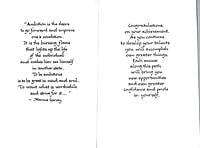 "Ambition is the desire
to go forward and improve
one's condition.
It is the burning flame
that lights up the life
of the individual
and makes him see himself
in another state.
To be ambitious
is to be great in mind and soul.
To want what is worthwhile
and strive for it..."
- Marcus Garvey
Congratulations
on your achievement.
As you continue
to develop your talents
you will accomplish
even greater things.
Each success
along this path
will bring you
new opportunities
and even greater
confidence and pride
in yourself.